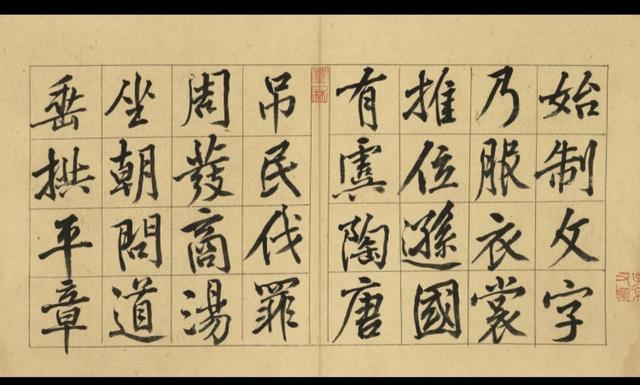 始制文字
乃服衣裳
推位遜國
有虞陶唐
吊民伐罪
周發商湯
坐朝問道
垂拱平章